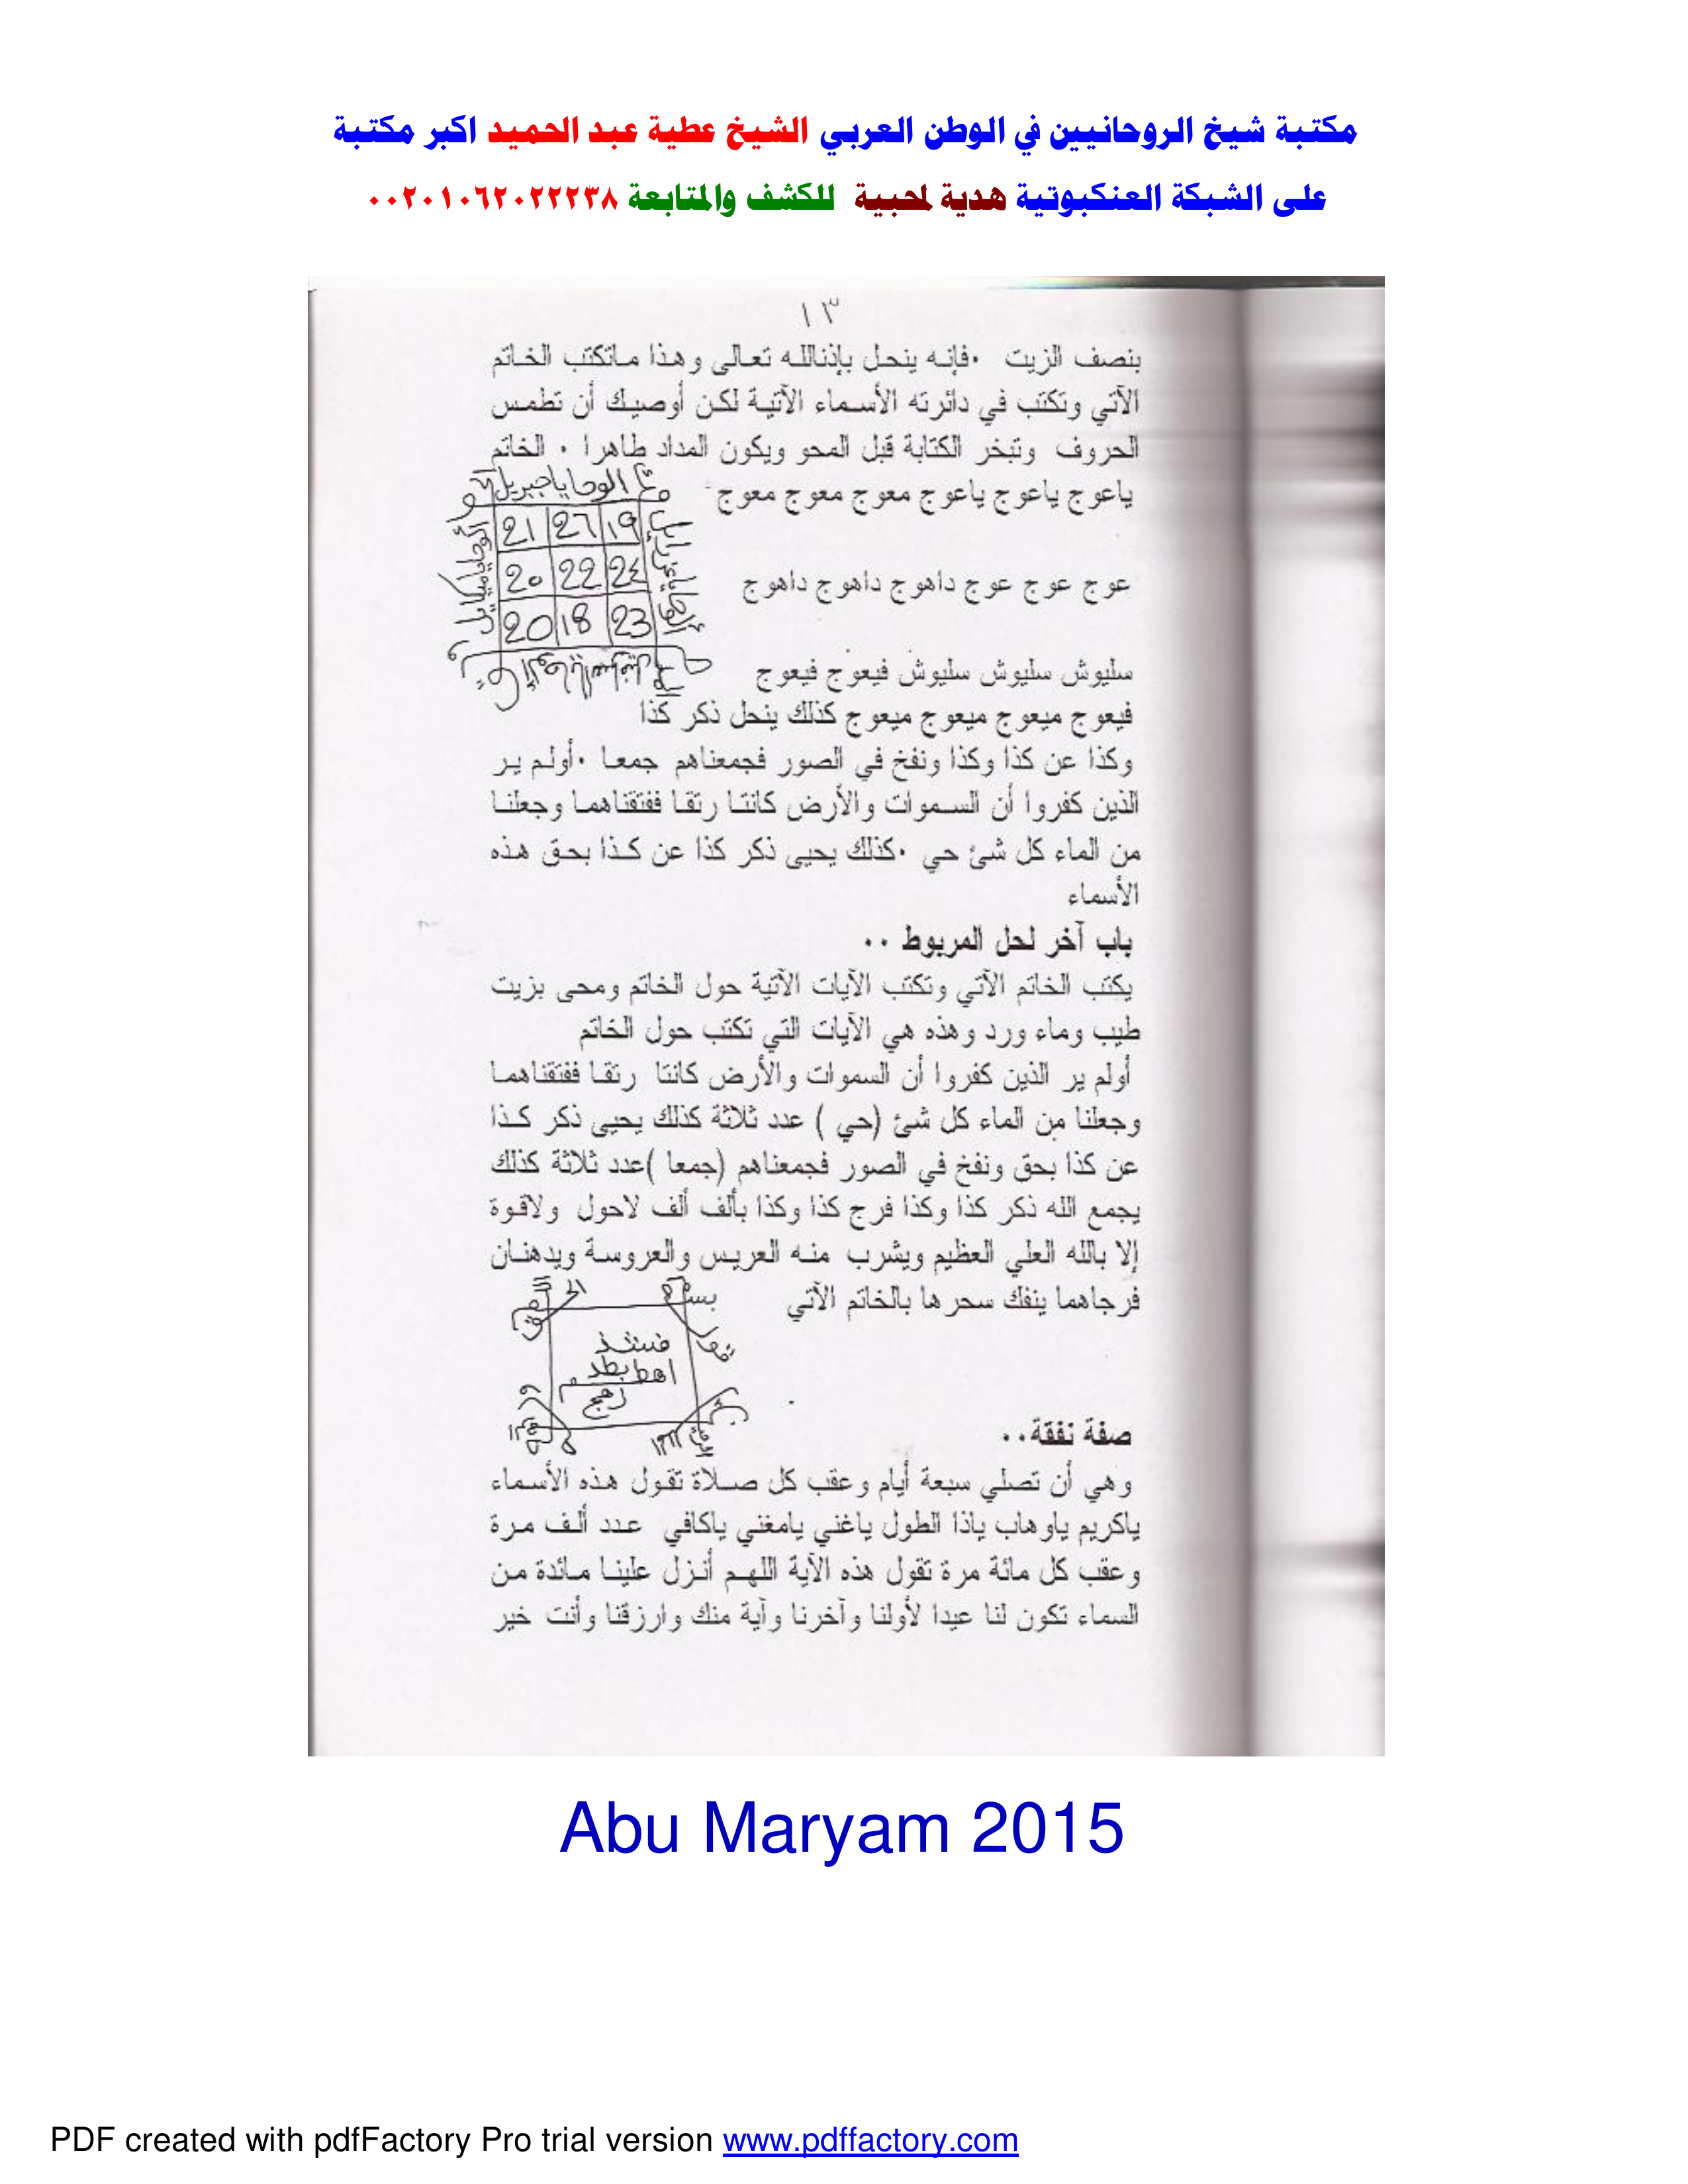 مكتبة شيخ الروحانيين في الوطن العربي الشيخ عطية عبد الحميد اكبر مكتبة
على الشبكة العنكبوتية هدية لمحبية للكشف والمتابعة ٠٠٢٠١٠٦٢٠٢٢٢٣٨
١٣
بنصف الزيت ٠فإنه ينحل بإذنالله تعالى وهذا ماتكتب الخاتم
الآتي وتكتب في دائرته الأسماء الآتية لكن أوصيك أن تطمس
الحروف وتبخر الكتابة قبل المحو ويكون المداد طاهرا ٠ الخاتم
الوحا ياجبريل
ياعوج ياعوج ياعوج معوج معوج معوج
21 26 19
20 22 24
20 18 23
الوحا ياميكاييل
عوج عوج عوج داهوج داهوج داهوج
سليوش سليوش سليوش فيعوج فيعوج
فيعوج ميعوج ميعوج ميعوج كذلك ينحل ذكر كذا
وكذا عن كذا وكذا ونفخ في الصور فجمعناهم جمعا ٠أولم ير
الذين كفروا أن السموات والأرض كانتا رتقا ففتقناهما وجعلنا
من الماء كل شئ حي ٠كذلك يحيى ذكر كذا عن كذا بحق هذه
الأسماء
باب آخر لحل المربوط ٠٠
يكتب الخاتم الآتي وتكتب الآيات الآتية حول الخاتم ومحى بزيت
طيب وماء ورد وهذه هي الآيات التي تكتب حول الخاتم
أولم ير الذين كفروا أن السموات والأرض كانتا رتقا ففتقناهما
وجعلنا من الماء كل شئ (حي ) عدد ثلاثة كذلك يحيى ذكر كذا
عن كذا بحق ونفخ في الصور فجمعناهم (جمعا )عدد ثلاثة كذلك
يجمع الله ذكر كذا وكذا فرج كذا وكذا بألف ألف لاحول ولاقوة
إلا بالله العلي العظيم ويشرب منه العريس والعروسة ويدهنان
فرجاهما ينفك سحرها بالخاتم الآتي
بسم
صفة نفقة٠٠
وهي أن تصلي سبعة أيام وعقب كل صلاة تقول هذه الأسماء
ياكريم ياوهاب ياذا الطول ياغني يامغني ياكافي عدد ألف مرة
وعقب كل مائة مرة تقول هذه الآية اللهم أنزل علينا مائدة من
السماء تكون لنا عيدا لأولنا وآخرنا وآية منك وارزقنا وأنت خير
Abu Maryam 2015
PDF created with pdfFactory Pro trial version www.pdffactory.com